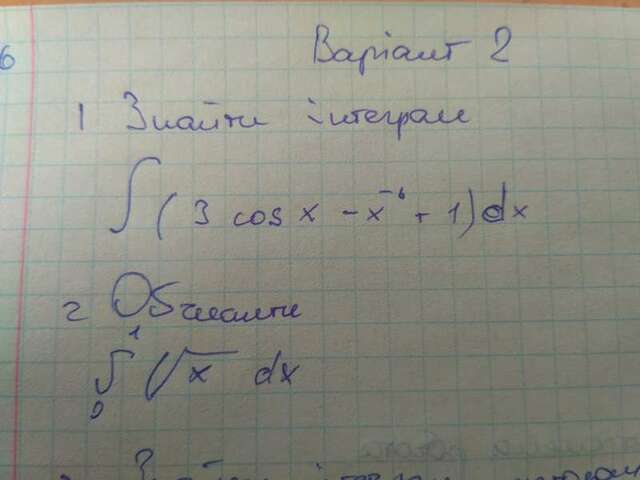 6
Варіант 2
1 Знайти інтеграл
∫ (3 cos x - x⁻⁶ + 1) dx
2 Обчислити
∫₀¹ √x dx